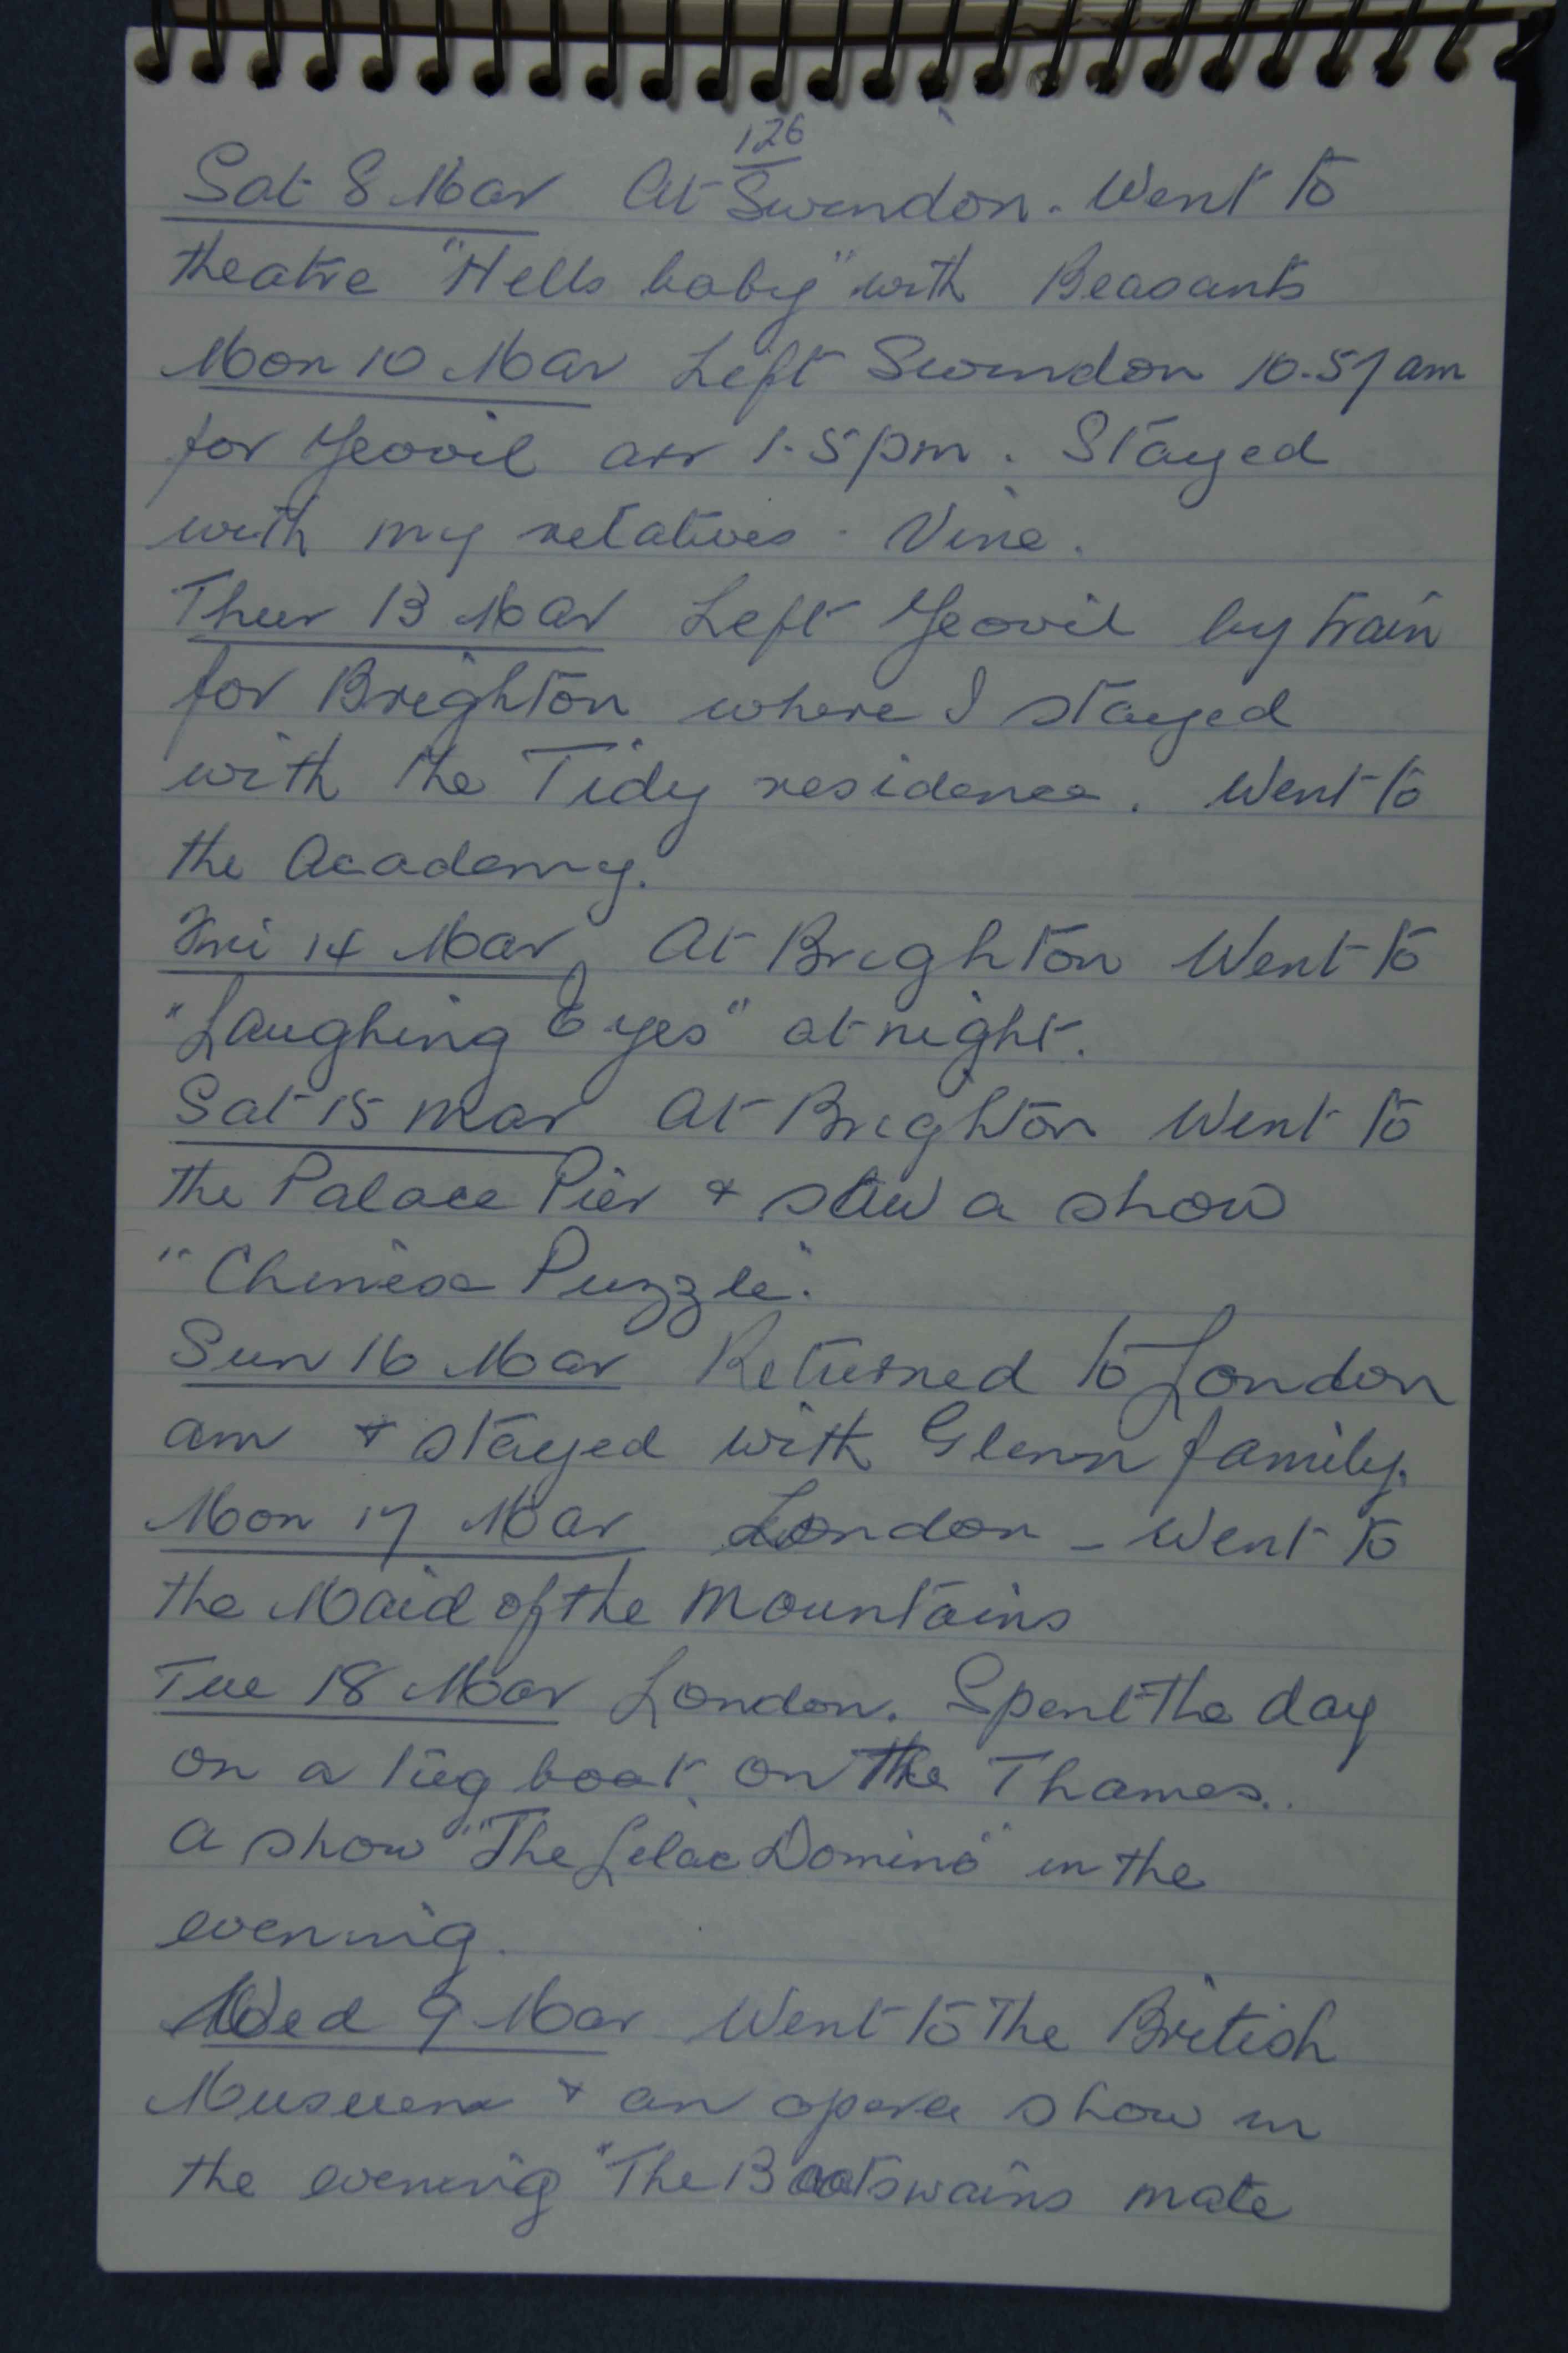 126
Sat 8 Mar At Swindon. Went to
theatre "Hello baby" with Beasants
Mon 10 Mar Left Swindon 10.57 am
for Yeovil arr 1.5pm. Stayed
with my relatives - Vine.
Thur 13 Mar Left Yeovil by train
for Brighton where I stayed
with the Tidy residence. Went to
the Academy.
Fri 14 Mar At Brighton Went to
"Laughing Eyes" at night.
Sat 15 Mar At Brighton Went to
the Palace Pier & saw a show
"Chinese Puzzle".
Sun 16 Mar Returned to London
am & stayed with Glenn family.
Mon 17 Mar London - Went to
the Maid of the Mountains
Tue 18 Mar London. Spent the day
on a tug boat on the Thames..
A show "The Lilac Domino" in the
evening.
Wed 9 Mar Went to the British
Museum & an opera show in
the evening "The Boatswains mate